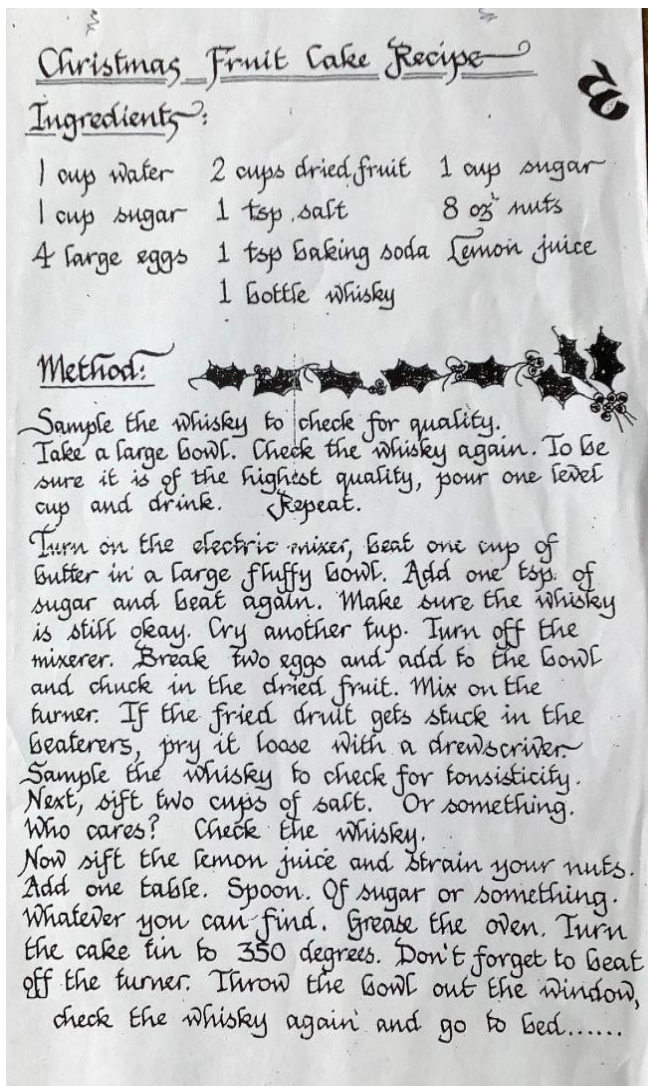 Christmas Fruit Cake Recipe
Ingredients:
1 cup water 2 cups dried fruit 1 cup sugar
1 cup sugar 1 tsp salt 8 oz nuts
4 large eggs 1 tsp baking soda Lemon juice
1 bottle whisky
Method:
Sample the whisky to check for quality.
Take a large bowl. Check the whisky again. To be
sure it is of the highest quality, pour one level
cup and drink. Repeat.
Turn on the electric mixer, beat one cup of
butter in a large fluffy bowl. Add one tsp. of
sugar and beat again. Make sure the whisky
is still okay. Cry another tup. Turn off the
mixerer. Break two eggs and add to the bowl
and chuck in the dried fruit. Mix on the
turner. If the fried druit gets stuck in the
beaterers, pry it loose with a drewscriver.
Sample the whisky to check for tonsisticity.
Next, sift two cups of salt. Or something.
Who cares? Check the whisky.
Now sift the lemon juice and strain your nuts.
Add one table. Spoon. Of sugar or something.
Whatever you can find. Grease the oven. Turn
the cake tin to 350 degrees. Don't forget to beat
off the turner. Throw the bowl out the window,
check the whisky again and go to bed......